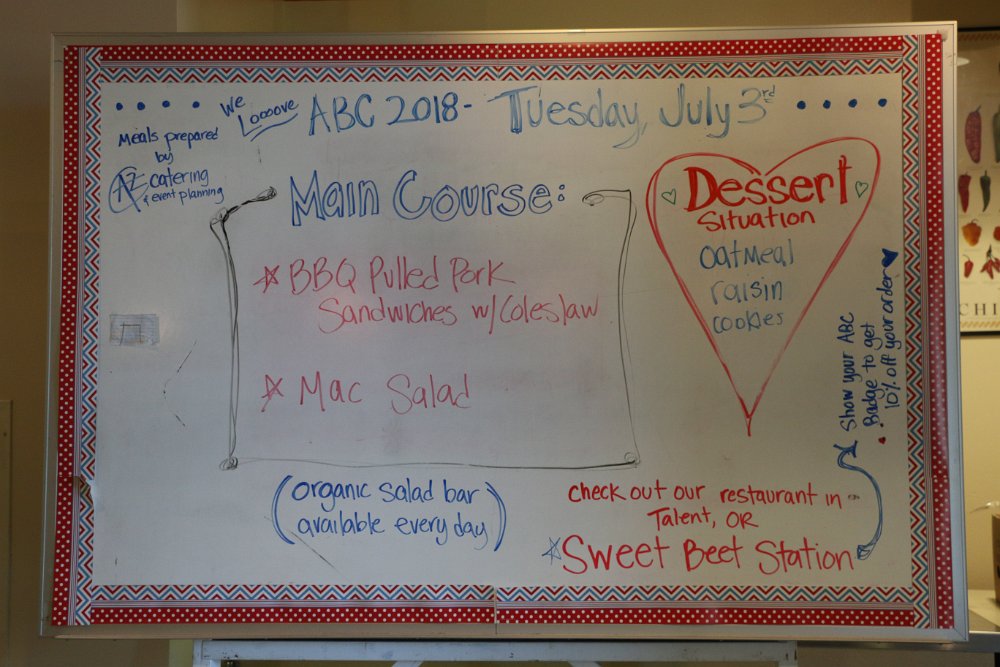 We
Looove
ABC 2018 - Tuesday, July 3rd
Meals prepared
by
AZ catering
& event planning
Main Course:
BBQ Pulled Pork
Sandwiches w/Coleslaw
Mac Salad
(organic salad bar
available every day)
Dessert
Situation
oatmeal
raisin
cookies
Show your ABC
Badge to get
10% off your order
check out our restaurant in
Talent, OR
Sweet Beet Station
CHI